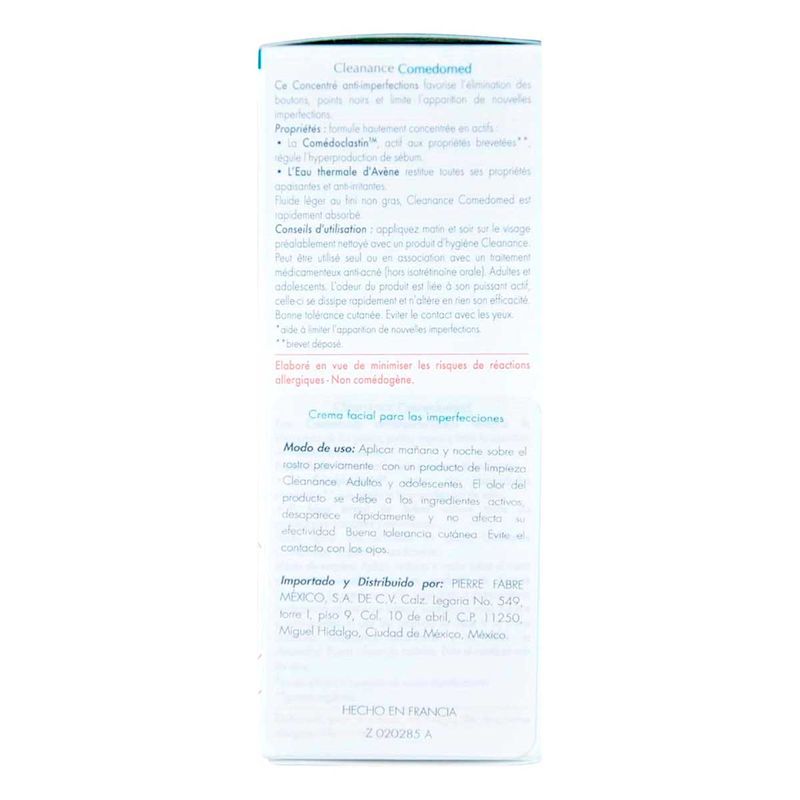 Cleanance Comedomed
Ce Concentré anti-imperfections favorise l'élimination des
boutons, points noirs et limite l'apparition de nouvelles
imperfections.
Propriétés : formule hautement concentrée en actifs :
• La Comédoclastin™, actif aux propriétés brevetées**,
régule l'hyperproduction de sébum.
• L'Eau thermale d'Avène restitue toutes ses propriétés
apaisantes et anti-irritantes.
Fluide léger au fini non gras, Cleanance Comedomed est
rapidement absorbé.
Conseils d'utilisation : appliquez matin et soir sur le visage
préalablement nettoyé avec un produit d'hygiène Cleanance.
Peut être utilisé seul ou en association avec un traitement
médicamenteux anti-acné (hors isotrétinoïne orale). Adultes et
adolescents. L'odeur du produit est liée à son puissant actif,
celle-ci se dissipe rapidement et n'altère en rien son efficacité.
Bonne tolérance cutanée. Eviter le contact avec les yeux.
*aide à limiter l'apparition de nouvelles imperfections.
**brevet déposé.
Elaboré en vue de minimiser les risques de réactions
allergiques - Non comédogène.
Crema facial para las imperfecciones
Modo de uso: Aplicar mañana y noche sobre el
rostro previamente con un producto de limpieza
Cleanance. Adultos y adolescentes. El olor del
producto se debe a los ingredientes activos,
desaparece rápidamente y no afecta su
efectividad. Buena tolerancia cutánea. Evite el
contacto con los ojos.
Importado y Distribuido por: PIERRE FABRE
MÉXICO, S.A. DE C.V. Calz. Legaria No. 549,
torre I, piso 9, Col. 10 de abril, C.P. 11250,
Miguel Hidalgo, Ciudad de México, México.
HECHO EN FRANCIA
Z 020285 A